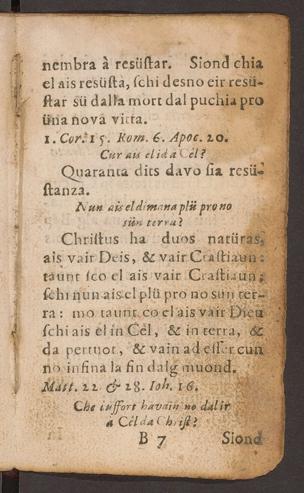 nembra à resüstar. Siond chia
el ais resüstà, schi desno eir resü-
star sü dalla mort dal puchia pro
üna nova vitta.
1. Cor. 15. Rom. 6. Apoc. 20.
Cur ais el ida Cêl?
Quaranta dits davo sia resü-
stanza.
Nun ais el dimana plü pro no
sün terra?
Christus ha duos natüras,
ais vair Deis, & vair Crastiaun:
taunt sco el ais vair Crastiaun,
schi nun ais el plü pro no sun ter-
ra: mo taunt co el ais vair Dieu
schi ais el in Cêl, & in terra, &
da pertuot, & vain ad esser cun
no infina la fin dalg muond.
Matt. 22 & 28. Ioh. 16.
Che cuffort havain no dal ir
a Cêl da Christ?
B 7 Siond